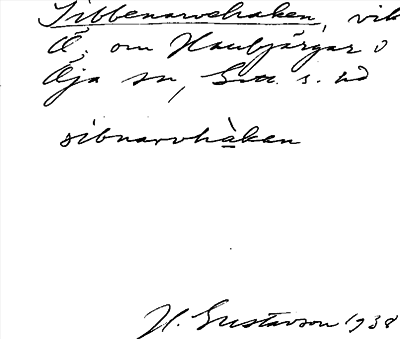 Sibbenarvehaken, vik
Ö. om Haubjärgar i
Öja sn, Gotl. s. hd
sibnarvhàken
H. Gustavson 1938